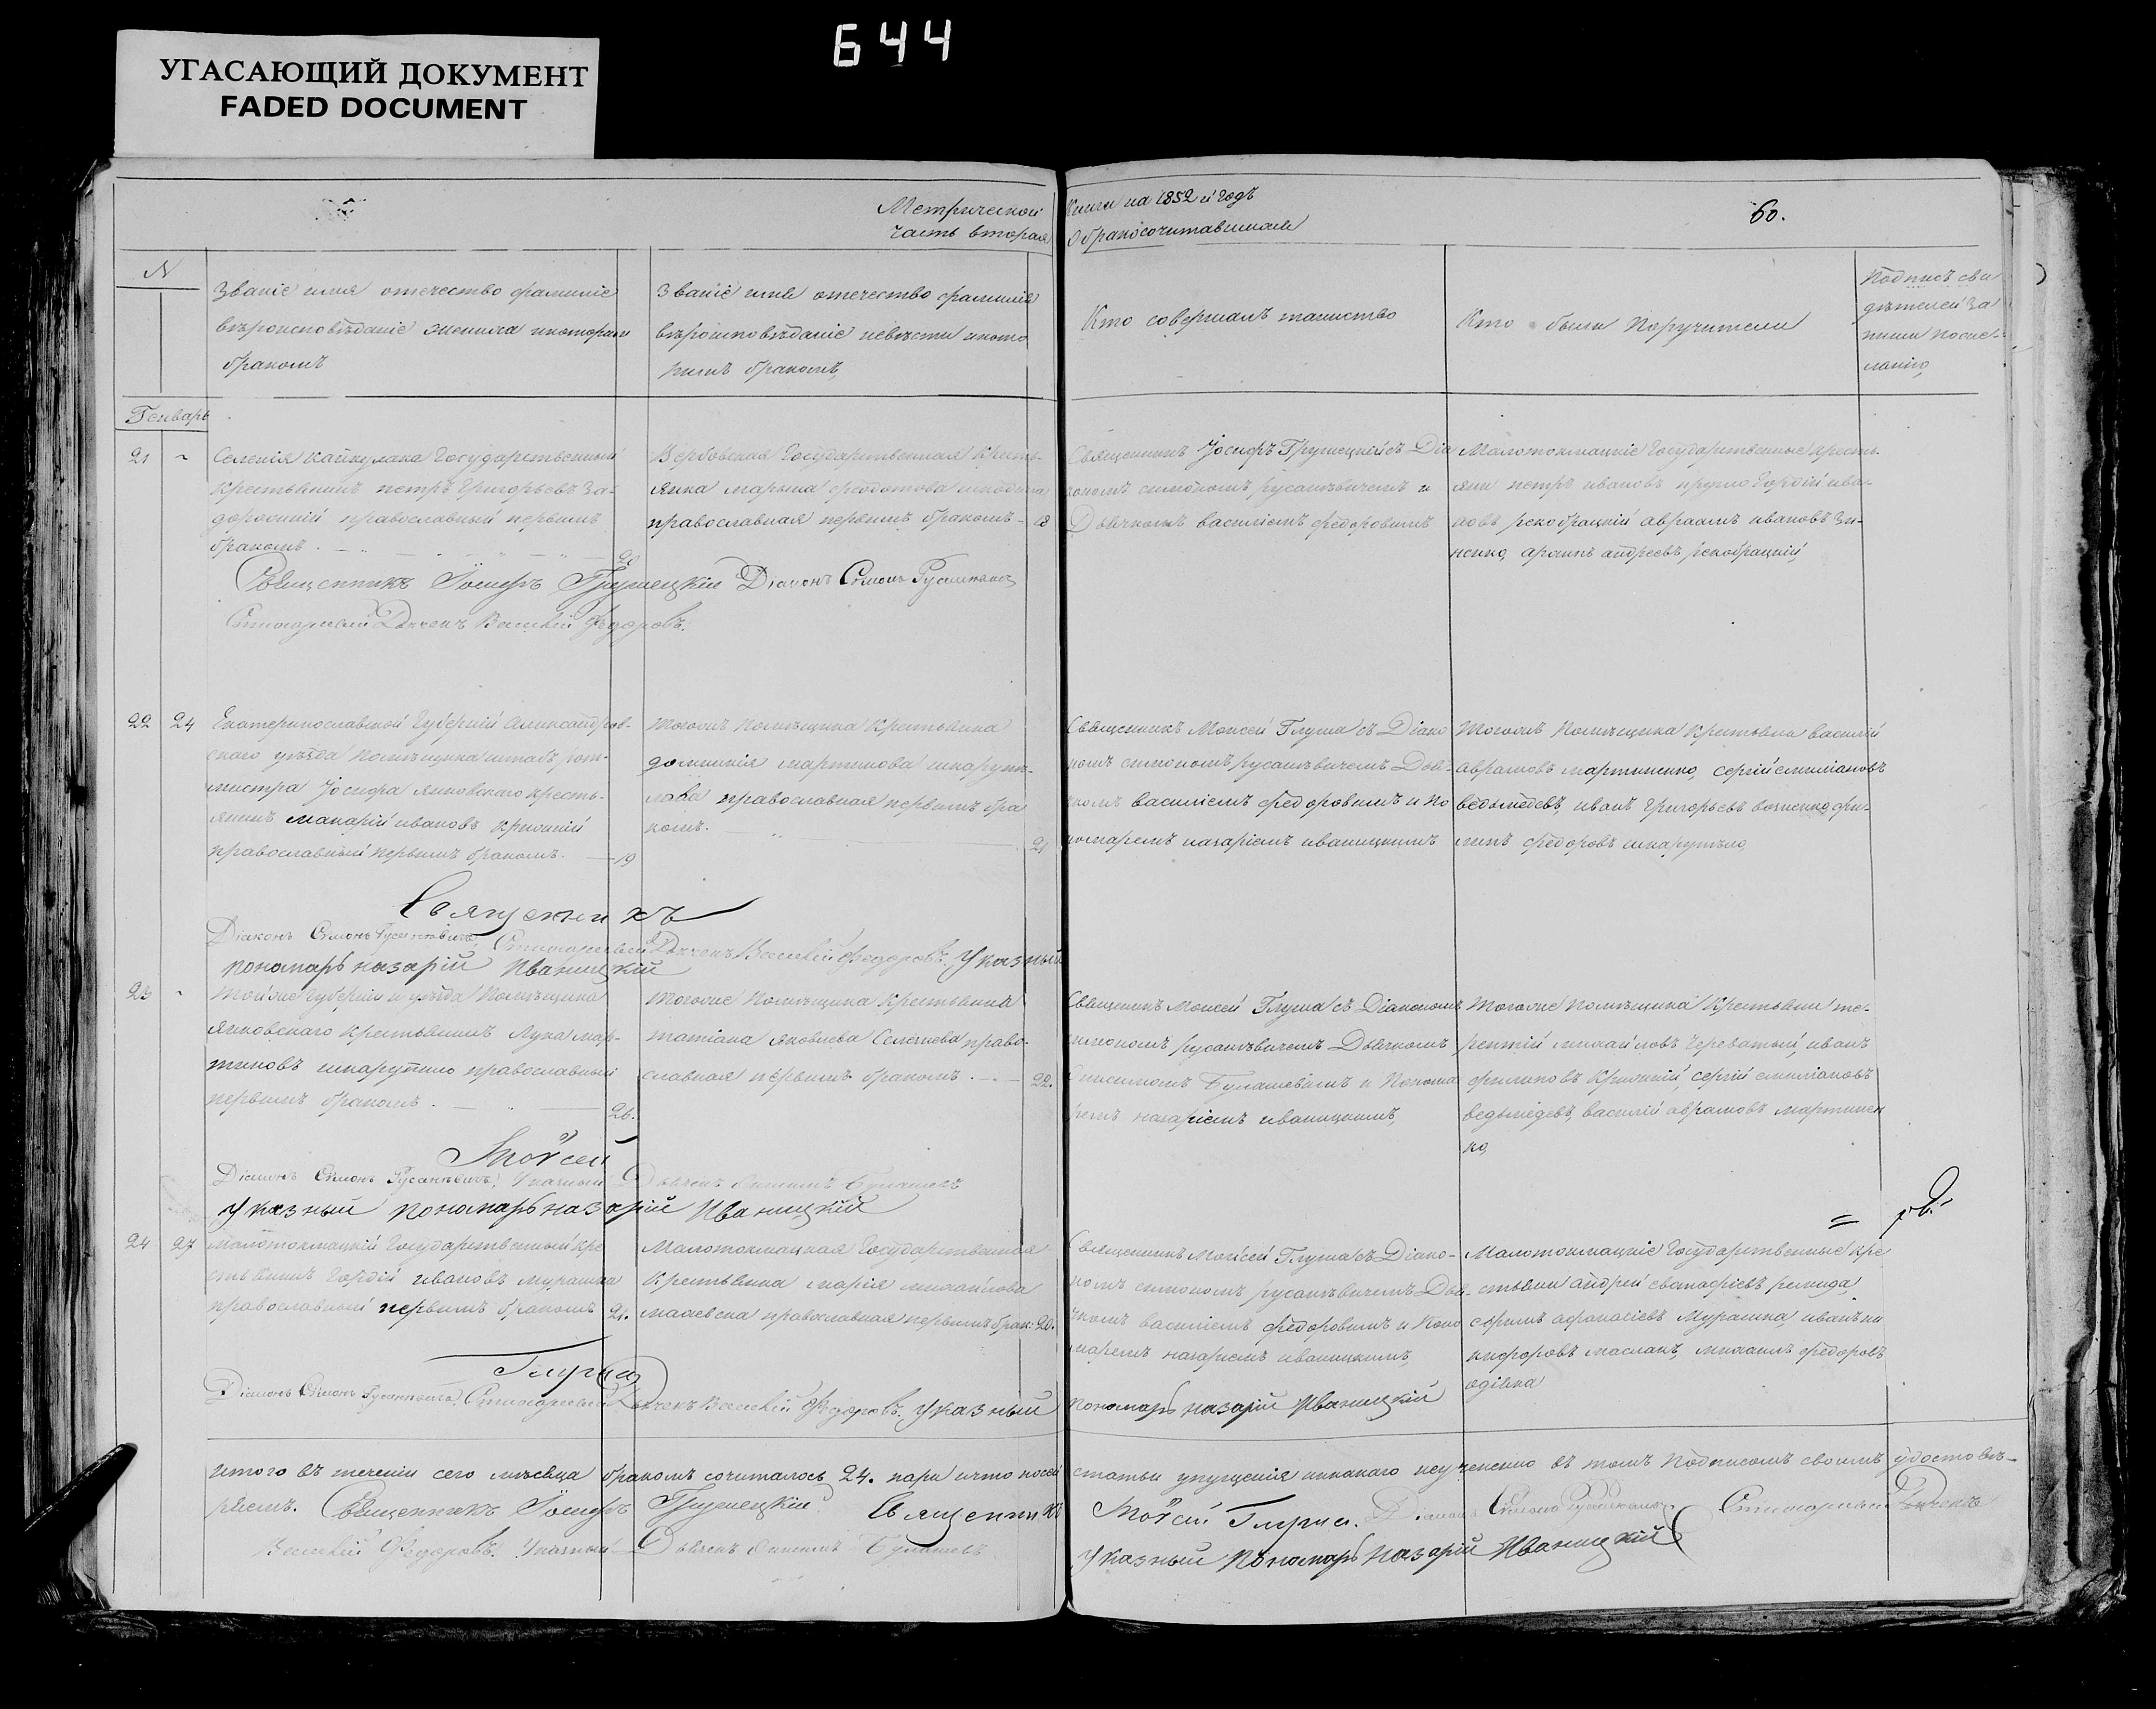 644
УГАСАЮЩИЙ ДОКУМЕНТ
FADED DOCUMENT
Метрической
часть вторая
Книги на 1852 й годъ
О бракосочитавшихся
60.
N
Званіе имя отечество фамиліе
вѣроисповѣданіе жениха икоторимъ
бракомъ
Званіе имя отечество фамилія
вѣроисповѣданіе невѣсти икото
римъ бракомъ,
Кто совершалъ таинство
Кто были Поручители
Подписъ сви
дѣтелей За
писи поже-
ланію,
Генварь
21
Селенія кайкулака Государственный
крестьянинъ петръ Григорьевъ За-
дорожній православный первимъ
бракомъ. 20
Вербовская Государственная Кресть-
янка марьша феодотова
православная первымъ бракомъ 18
Священникъ Іосифъ Грушецкій съ Діа
кономъ симономъ русаневичемъ и
Дьячкомъ василіемъ федоровимъ
Малотокмацкіе Государственные кресть-
яни петръ ивановъ Гордій ива-
новъ рекобрацкій авраамъ ивановъ Зи-
ненко, андреевъ рекобрацкій,
Священникъ Іосифъ Грушецкій Діаконъ Симонъ Русаневичъ
Стихарный Дьячекъ Василій Федоровъ.
22 24
Екатеринославской Губерній Александров-
скаго уѣзда Помѣщика штабъ рот-
мистра Іосифа янковскаго кресть-
янинъ макарій ивановъ крившій
православный первимъ бракомъ. 19
Тогожъ Помѣщика Крестьянка
домникія мартинова шкарупѣ-
лова православная первимъ бра
комъ. 21
Священникъ Моисей Глуша съ Діако
номъ симономъ русаневичемъ Дья-
чкомъ василіемъ федоровимъ и По
номаремъ назаріемъ иваницкимъ
Тогожъ Помѣщика Крестьяна василій
аврамовъ мартиненко, сергій емиліановъ
ведьмѣдевъ, иванъ Григорьевъ фи-
липъ федоровъ шкарупѣло,
Священникъ
Діаконъ Симонъ Русаневичъ, Стихарный Дьячекъ Василій Федоровъ. Указный
пономарь назарій Иваницкій
23
Тойже Губерніи и уѣзда Помѣщика
янковскаго крестьянинъ Лука мар-
тиновъ шкарупило православный
первимъ бракомъ. 26.
Тогоже Помѣщика Крестьянка
татіана яковлева Селезнева право-
славная первымъ бракомъ. 22.
Священникъ Моисей Глуша съ Діакономъ
симономъ русаневичемъ Дьячкомъ
Онисимомъ Булашевимъ и Понома
ремъ назаріемъ иваницкимъ,
Тогоже Помѣщика Крестьяни те-
рентій михайловъ Череватый, иванъ
филиповъ Крившій, сергій емиліановъ
ведьмѣдевъ, василій аврамовъ мартинен
ко,
Моѵсей
Діаконъ Симонъ Русаневичъ, Указный Дьячекъ Онисимъ Булашевъ
Указный пономарь назарій Иваницкій
24 27
Малотокмацкій Государственный кре
стьянинъ Гордій ивановъ мурашка
православный первымъ бракомъ 21.
Малотокмацкая Государственная
Крестьянка марія михайлова
православная первымъ брак: 20.
Священникъ Моисей Глуша съ Діако-
номъ симономъ русаневичемъ Дья-
чкомъ василіемъ федоровимъ и Поно
маремъ назаріемъ иваницкимъ,
Малотокмацкіе Государственные кре
стьяни андрей евстафіевъ
ефимъ афанасіевъ Мурашка, иванъ ни
кифоровъ масланъ, михаилъ федоровъ
Глуша
Діаконъ Симонъ Русаневичъ, Стихарный Дьячекъ Василій Федоровъ. Указный пономарь назарій Иваницкій
итого въ теченіи сего мѣсяца бракомъ сочиталось 24. пари ичто посей статьи упущенія никакаго неучинено въ томъ Подписомъ своимъ удостовѣ-
ряемъ. Священникъ Іосифъ Грушецкій Священникъ Моѵсей Глуша. Діаконъ Симонъ Русаневичъ. Стихарный Дьячекъ
Василій Федоровъ. Указный Дьячекъ Онисимъ Булашевъ Указный Пономарь Назарій Иваницкій